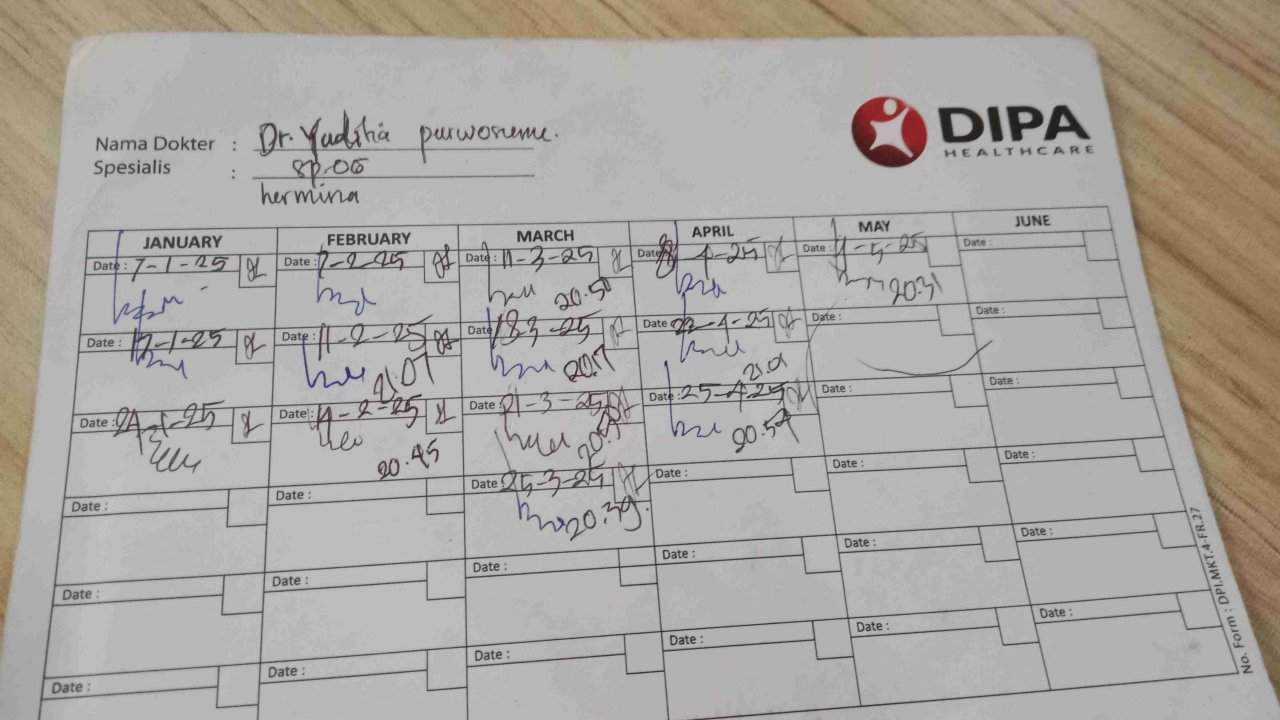 DIPA
HEALTHCARE
Nama Dokter : Dr. Yuditia purwoneme.
Spesialis : sp.OG
hermina
JANUARY FEBRUARY MARCH APRIL MAY JUNE
Date : 7-1-25 Date : 7-2-25 Date : 11-3-25 Date : 8 4-25 Date : 9-5-25 Date :
20.50 20.31
Date : 17-1-25 Date : 11-2-25 Date : 18-3-25 Date : 22-4-25 Date : Date :
21.07 20.17 21.01
Date : 24-1-25 Date : 14-2-25 Date : 21-3-25 Date : 25-4-25 Date : Date :
20.45 20.54
Date : Date : Date : 25-3-25 Date : Date : Date :
20.39.
Date : Date : Date : Date : Date : Date :
Date : Date : Date : Date : Date : Date :
No. Form : DPI.MKT.4-FR.27